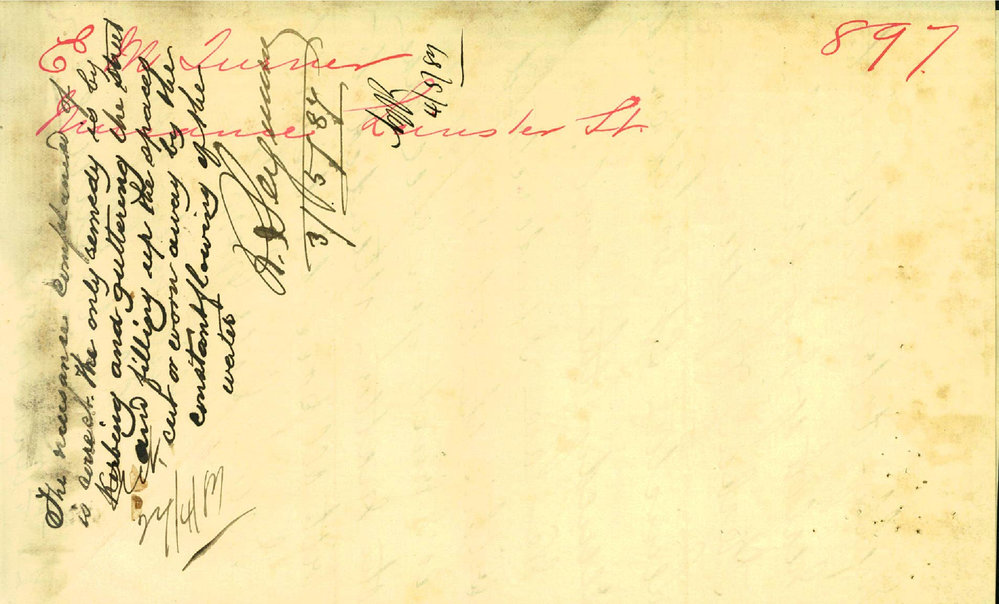 897
E M Turner
Nuisance Leinster St
The nuisance complained of
is correct. The only remedy is by
Kerbing and guttering the street
and filling up the spaces
cut or worn away by the
constant flowing of the
water
3/5/87
4/5/87
27/4/87